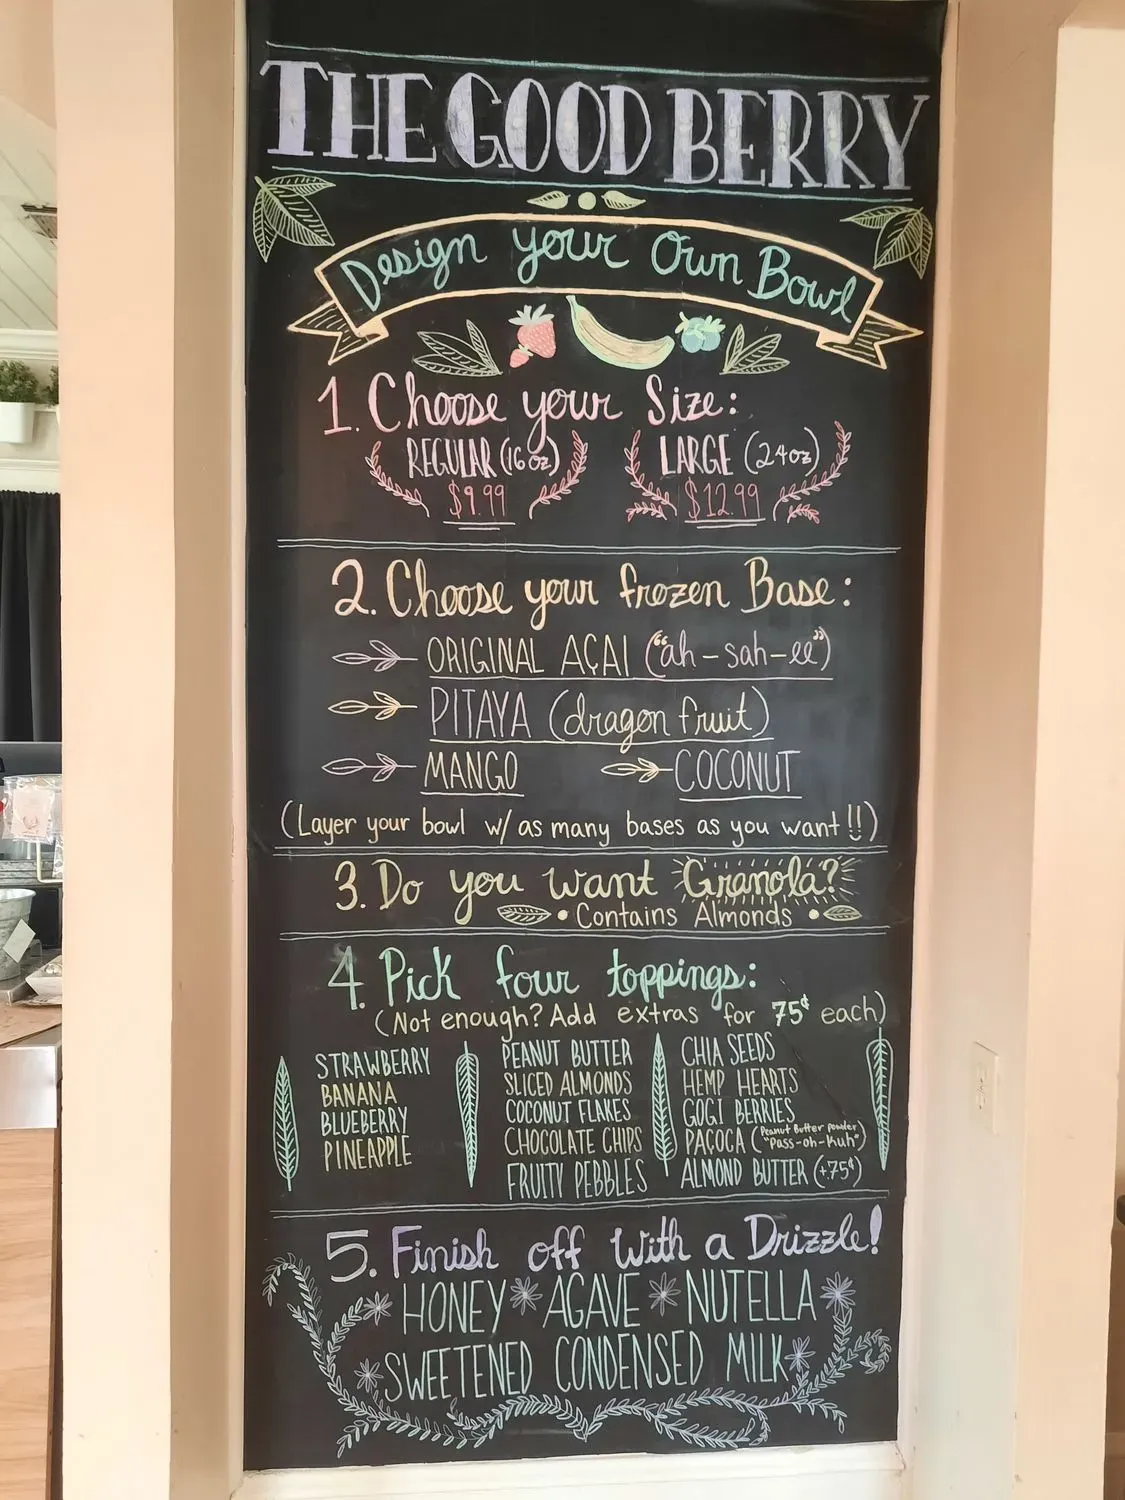 THE GOOD BERRY
Design your Own Bowl
1. Choose your Size:
REGULAR (16oz) LARGE (24oz)
$9.99 $12.99
2. Choose your frozen Base:
ORIGINAL AÇAI ("ah-sah-ee")
PITAYA (dragon fruit)
MANGO COCONUT
(Layer your bowl w/ as many bases as you want!!)
3. Do you want Granola?
• Contains Almonds •
4. Pick four toppings:
(Not enough? Add extras for 75¢ each)
STRAWBERRY
BANANA
BLUEBERRY
PINEAPPLE
PEANUT BUTTER
SLICED ALMONDS
COCONUT FLAKES
CHOCOLATE CHIPS
FRUITY PEBBLES
CHIA SEEDS
HEMP HEARTS
GOGI BERRIES
PAÇOCA (Peanut Butter powder "Pass-oh-Kuh")
ALMOND BUTTER (+.75¢)
5. Finish off with a Drizzle!
HONEY * AGAVE * NUTELLA *
* SWEETENED CONDENSED MILK *